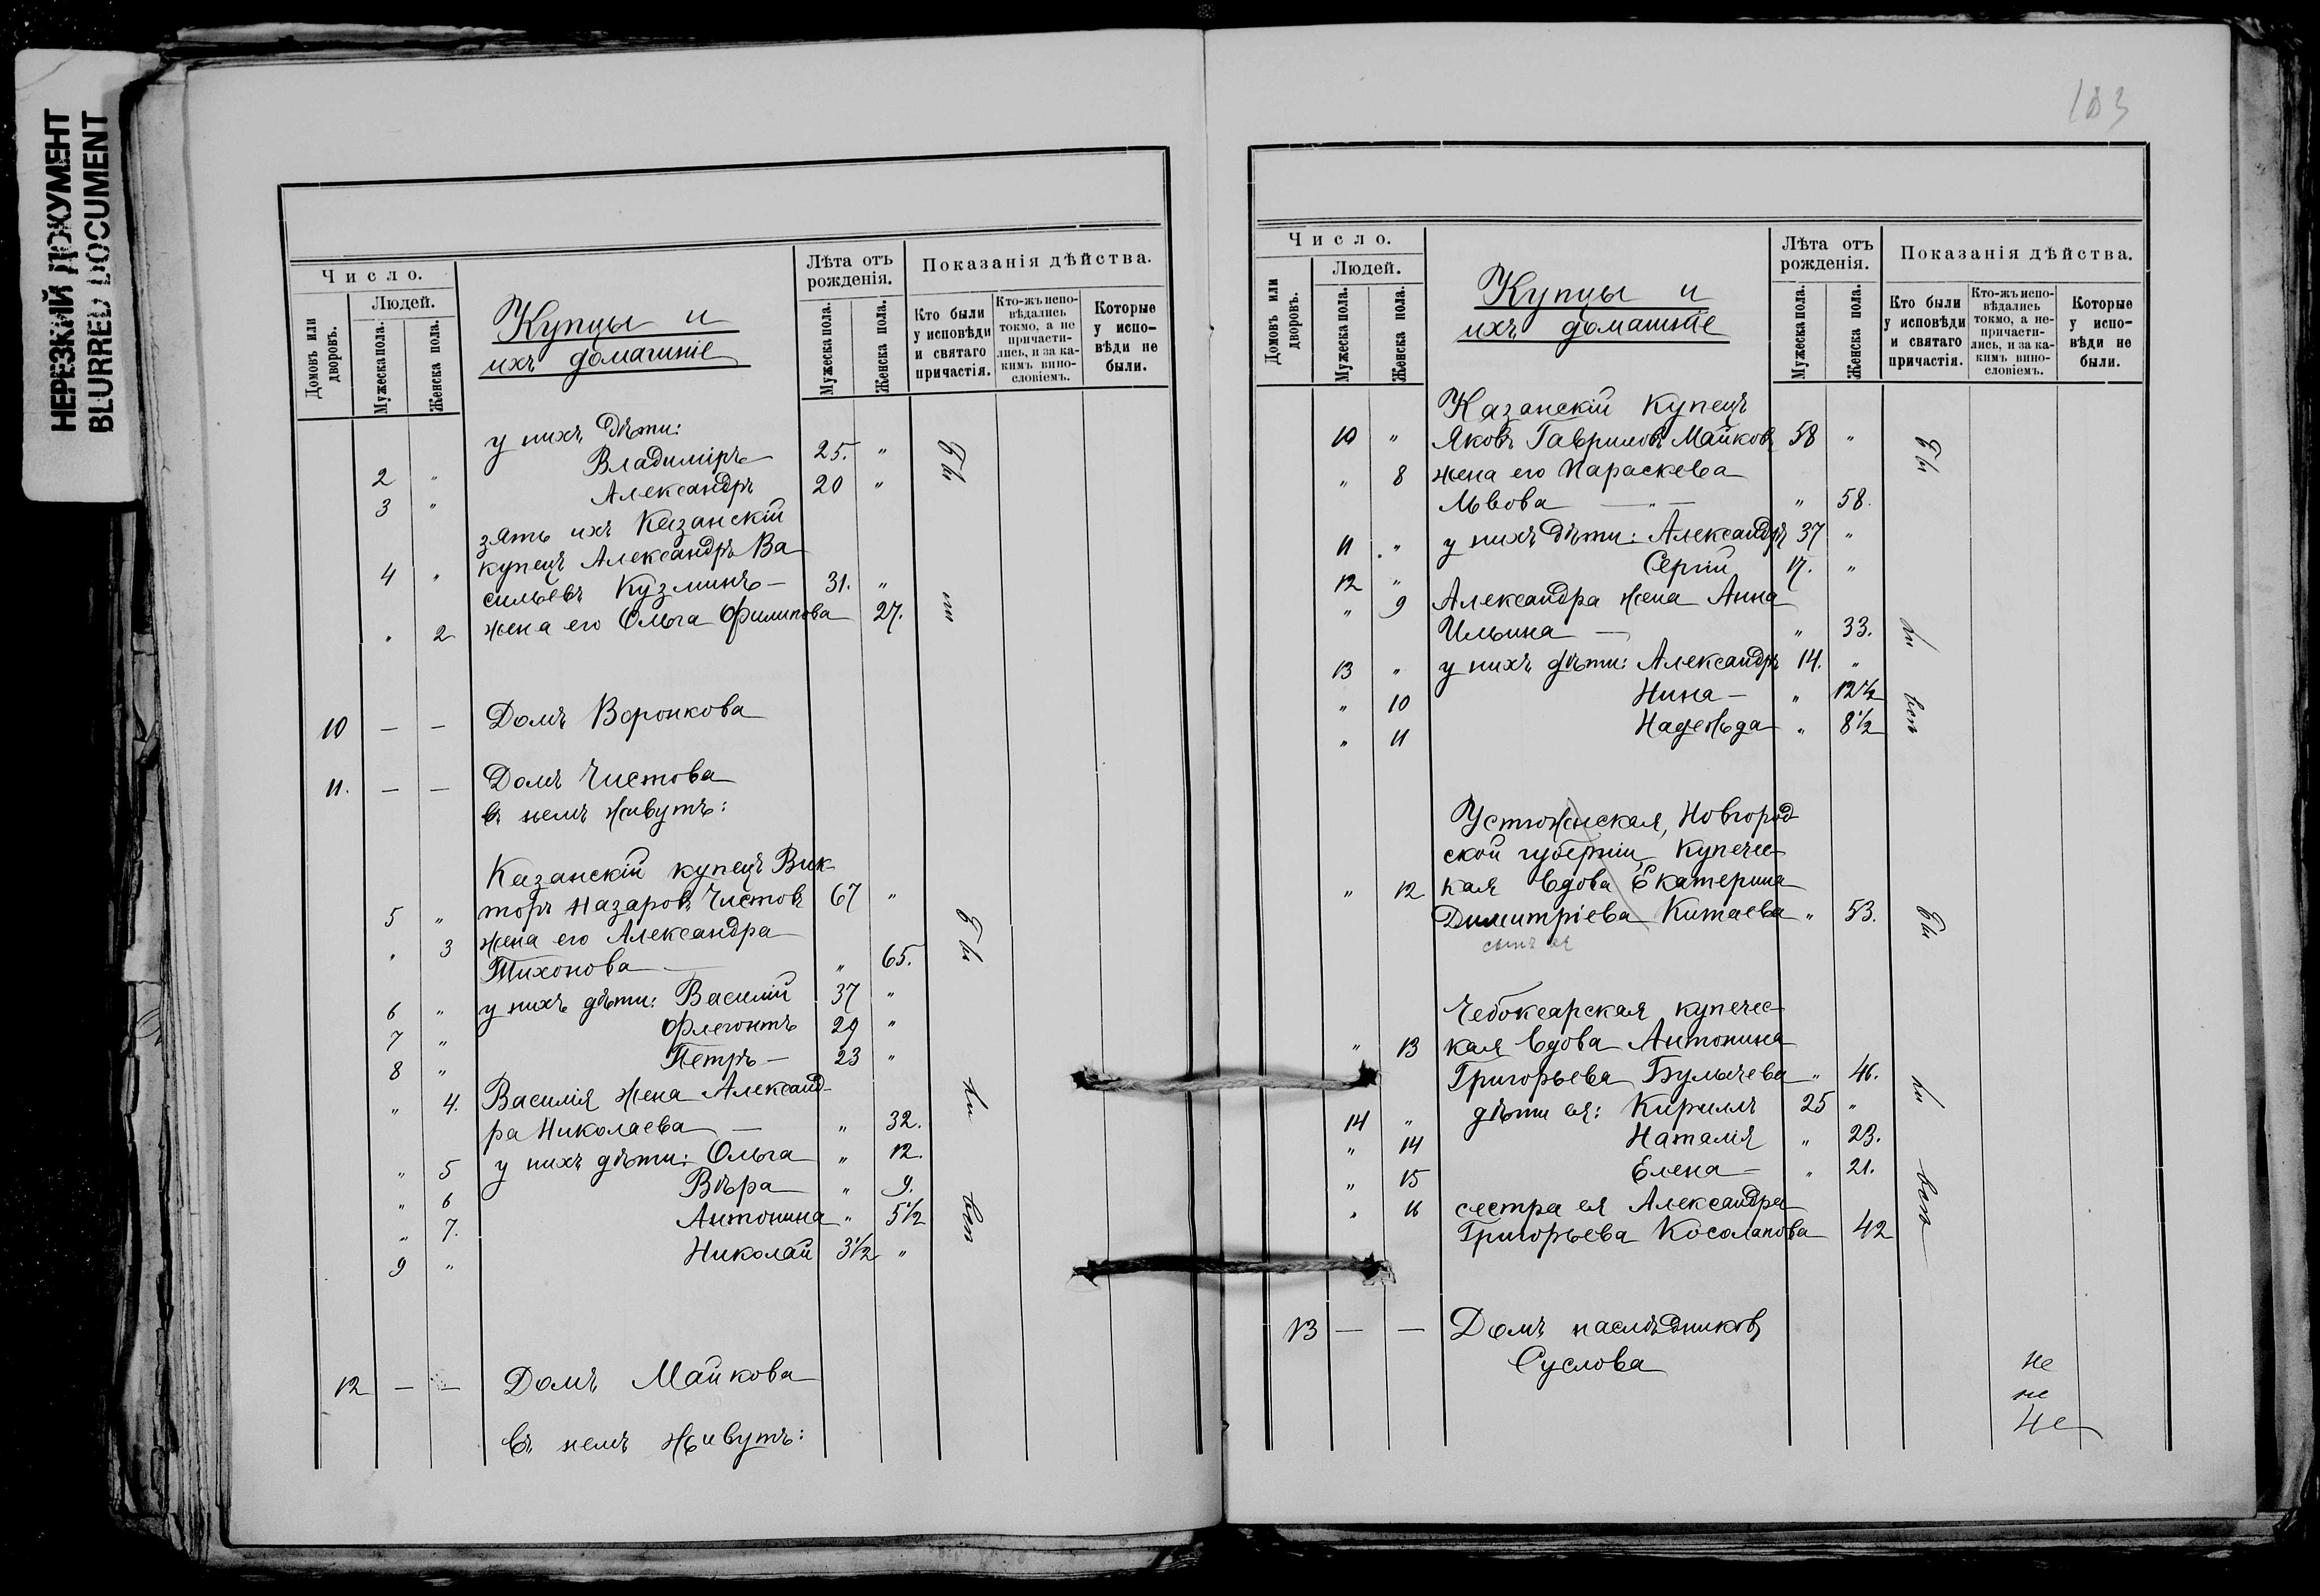 НЕРЕЗКИЙ ДОКУМЕНТ
BLURRED DOCUMENT
Число.
Людей.
Домовъ или дворовъ.
Мужеска пола.
Женска пола.
Купцы и
ихъ домашніе
Лѣта отъ рожденія.
Мужеска пола.
Женска пола.
Показанія дѣйства.
Кто были у исповѣди и святаго причастія.
Кто-жъ исповѣдались токмо, а не причастились, и за какимъ винословіемъ.
Которые у исповѣди не были.
у нихъ дѣти:
2 " Владиміръ 25. "
3 " Александръ 20 "
зять ихъ Казанскій
4 " купецъ Александръ Ва
сильевъ Кузминъ — 31. "
" 2 жена его Ольга Филипова 27.
10 — — Домъ Воронкова
11. — — Домъ Чистова
въ немъ живутъ:
Казанскій купецъ Вик-
5 " торъ Назаровъ Чистовъ 67 "
" 3 жена его Александра
Тихонова — " 65.
6 " у нихъ дѣти: Василій 37 "
7 " Флегонтъ 29 "
8 " Петръ — 23 "
" 4. Василія жена Александ-
ра Николаева — " 32.
" 5 у нихъ дѣти: Ольга " 12.
" 6 Вѣра " 9.
" 7. Антонина " 5½
9 " Николай 3½ "
Бы
ли
всѣ
12 — — Домъ Майкова
въ немъ живутъ:
183
Число.
Людей.
Домовъ или дворовъ.
Мужеска пола.
Женска пола.
Купцы и
ихъ домашніе
Лѣта отъ рожденія.
Мужеска пола.
Женска пола.
Показанія дѣйства.
Кто были у исповѣди и святаго причастія.
Кто-жъ исповѣдались токмо, а не причастились, и за какимъ винословіемъ.
Которые у исповѣди не были.
Казанскій купецъ
10 " Яковъ Гавриловъ Майковъ 58 "
" 8 жена его Параскева
Львова — " — " 58.
11 " у нихъ дѣти: Александръ 37 "
12 " Сергій 17. "
" 9 Александра жена Анна
Ильина — " 33.
13 " у нихъ дѣти: Александръ 14. "
" 10 Нина — " 12½
" 11 Надежда " 8½
Бы
ли
всѣ
Устюженская, Новгород
ской губерніи, купечес
" 12 кая вдова Екатерина
Димитріева Китаева " 53.
сынъ ея
Чебоксарская купечес-
" 13 кая вдова Антонина
Григорьева Булычева " 46.
14 " дѣти ея: Кириллъ 25 "
" 14 Наталія " 23.
" 15 Елена — " 21.
" 16 сестра ея Александра
Григорьева Косолапова 42
Бы
ли
всѣ
13 — — Домъ наслѣдниковъ
Суслова
не
не
не